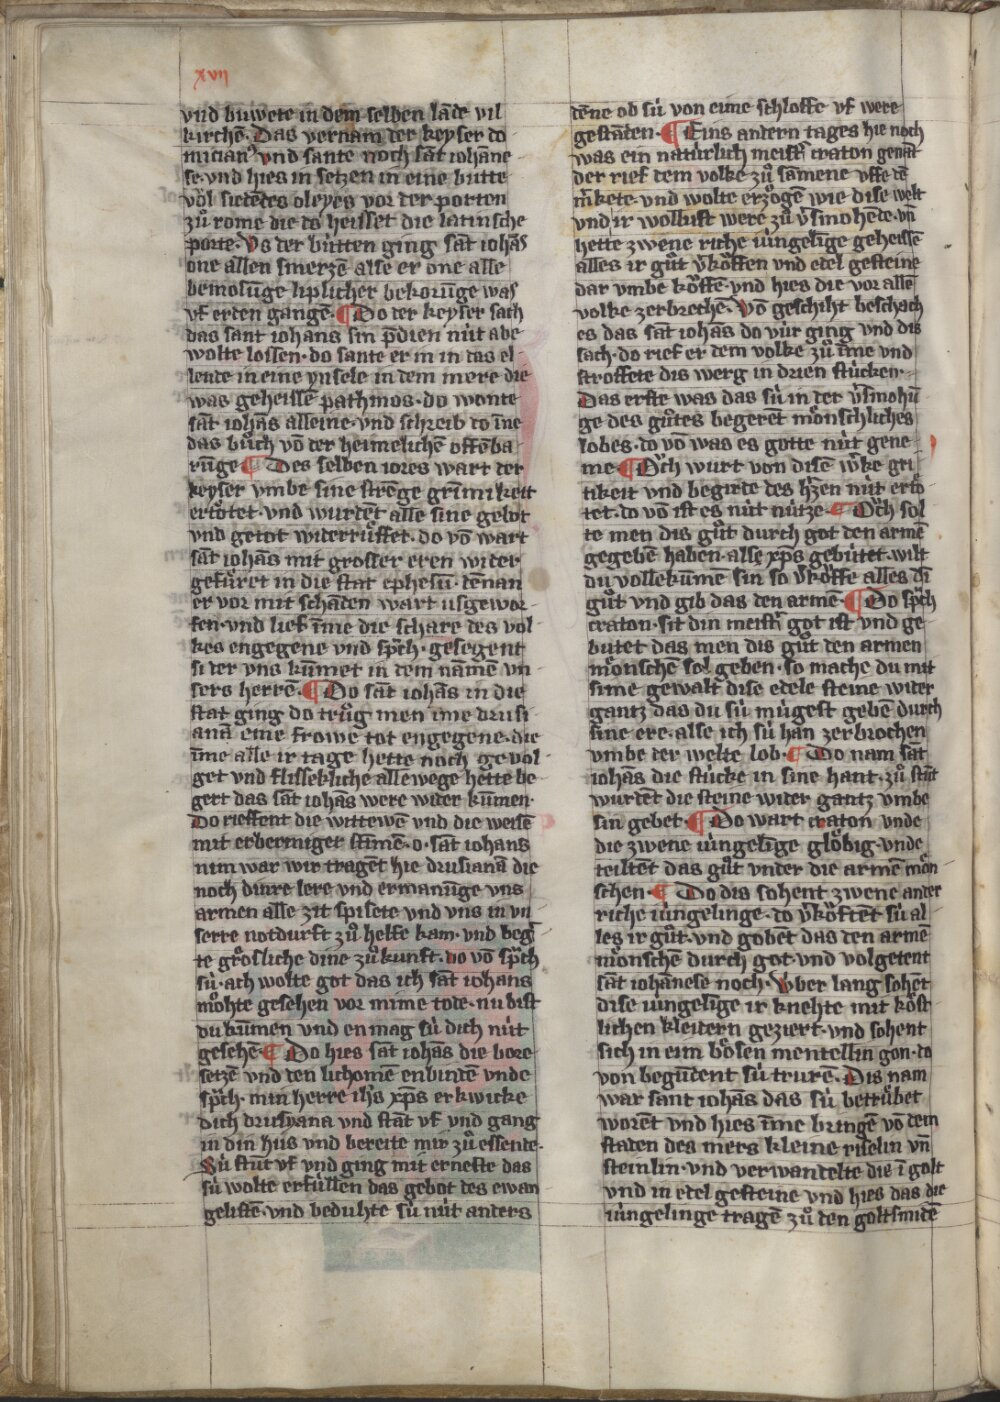 xvii
vnd buwete in dem selben lāde vil
kirchē. Das vernam der keyser do
micianꝰ vnd sante noch sāt iohāne
se. vnd hies in setzen in eine butte
vol siedēdes oleyes vor der porten
zů rome die do heisset die latinsche
porte. Vs der bùtten ging sāt iohās
one allen smerzē alse er one alle
bemosūge liplicher bekorūge was
vf erden gangē. ¶ Do der keyser sach
das sant iohans sin p̄dien nùt abe
wolte lossen. do sante er in in das el-
lende in eine ynsele in dem mere die
was geheissē pathmos. do wonte
sāt iohās alleine. vnd schreib do īne
das bůch vō der heimelichē offēba
rūge ¶ Des selben iores wart der
keyser vmbe sine strēge grīmikeit
ertötet. vnd wurdēt alle sine gebot
vnd getot widerrůffet. do vō wart
sāt iohās mit grosser eren wider
gefůret in die stat ephesū. dēnan
er vor mit schāden wart usgewor-
fen. vnd lief īme die schare des vol-
kes engegene vnd sp̄ch. gesegent
si der vns kūmet in dem nāmē vn
sers herrē. ¶ Do sāt iohās in die
stat ging do trůg men ime drusi-
anā eine frowe tot engegene. die
īme alle ir tage hette noch gevol-
get vnd flissekliche alle wege hette be-
gert das sāt iohās were wider kūmen.
Do riessent die wittewē vnd die weisē
mit erbermiger stīmē. o. sāt iohans
nim war wir tragēt hie drusianā die
noch dinre lere vnd ermanūge vns
armen alle zit spisete vnd vns in vn
serre notdurft zů helfe kam. vnd beḡr
te grösliche dine zůkunft. do vō sp̄ch
sù. ach wolte got das ich sāt iohans
möhte gesehen vor mime tode. nu bist
du kūmen vnd en mag sù dich nùt
gesehē ¶ Do hies sāt iohās die bore
setzē vnd den lichomē enbindē vnde
sp̄ch. min herre ih̄s xp̄s erkwicke
dich drusyana vnd stāt vf vnd gang
in din hùs vnd bereite mir zů essende.
Sù stūt vf vnd ging mit erneste das
sù wolte erfùllen das gebot des ewan
gelistē. vnd beduhte sù nùt anders
dēne ob sù von eime schlosse vf were
gestāden. ¶ Eins andern tages hie noch
was ein natùrlich meist̄ craton genāt
der rief dem volke zů sāmene vffe dē
m̄kete. vnd wolte erzögē wie dise welt
vnd ir wollust were zů v̄smohēde. vn̄
hette zwene riche iùngelīge geheissē
alles ir gůt v̄köffen vnd edel gesteine
dar vmbe köffē. vnd hies die vor allē
volke zerbrechē. Vō geschiht beschach
es das sāt iohās do vùr ging vnd dis
sach. do rief er dem volke zů īme vnd
stroffete dis werg in drien stùcken.
Das erste was das sù in der v̄smohū
ge des gůtes begerēt mönschliches
lobes. do vō was es gotte nùt gene-
me ¶ Öch wurt von disē w̄ke gri
tikeit vnd begirde des h̄zen nùt ertö
tet. do vō ist es nùt nùtze ¶ Och sol
te men dis gůt durch got den armē
gegebē haben. alse xp̄s gebùtet. wilt
du vollekumē sin so v̄köffe alles dī
gůt vnd gib das den armē ¶ Do sp̄ch
craton. sit din meist̄ got ist vnd ge
butet das men dis gůt den armen
mönschē sol geben. so mache du mit
sime gewalt dise edele steine wider
gantz das du sù mùgest gebē durch
sine ere. alse ich sù han zerbrochen
vmbe der welte lob. ¶ Do nam sāt
iohās die stùcke in sine hant. zů stūt
wurdēt die steine wider gantz vmbe
sin gebet. ¶ Do wart craton vnde
die zwene iùngelīge glöbig. vnde
teiltēt das gůt vnder die armē mön
schen. ¶ Do dis sohent zwene ander
riche iùngelinge. do v̄köftēt sù al-
les ir gůt. vnd gobēt das den armē
mönschē durch got. vnd volgetent
sāt iohānese noch. Vber lang sohēt
dise iùngelīge ir knehte mit köst
lichen kleidern geziert. vnd sohent
sich in eim bösen mentellin gon. do
von begūdent sù trurē. Dis nam
war sant iohās das sù betrùbet
worēt vnd hies īme bringē vō dem
staden des mers kleine riselin vn̄
steinlin. vnd verwandelte die ī golt
vnd in edel gesteine vnd hies das die
iùngelinge tragē zů den goltsmidē